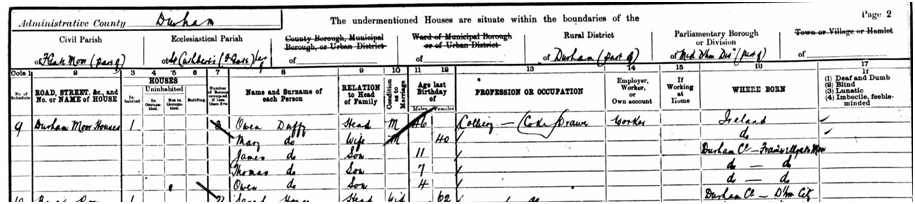 Administrative County Durham The undermentioned Houses are situate within the boundaries of the Page 2
Civil Parish Ecclesiastical Parish County Borough, Municipal Borough, or Urban District Ward of Municipal Borough or of Urban District Rural District Parliamentary Borough or Division Town or Village or Hamlet
of of of of of Durham (part of) of of
Cols. 1 2 3 4 5 6 7 8 9 10 11 12 13 14 15 16 17
No. of Schedule ROAD, STREET, &c., and No. or NAME of HOUSE HOUSES Inhabited Uninhabited In Occupation Not in Occupation Building Name and Surname of each Person RELATION to Head of Family Condition as to Marriage Age last Birthday of Males Females PROFESSION OR OCCUPATION Employer, Worker, or Own account If Working at Home WHERE BORN (1) Deaf and Dumb (2) Blind (3) Lunatic (4) Imbecile, feeble-minded
9 Durham Moor Houses 1 Owen Duffy Head M 46 Colliery - Coke Drawer Worker Ireland
Mary do Wife M 40 do
James do Son 11 Durham Co - Framwellgate Moor
Thomas do Son 7 do - do
Owen do Son 4 do - do
1 Head Wid 62 Durham Co - D'ham City